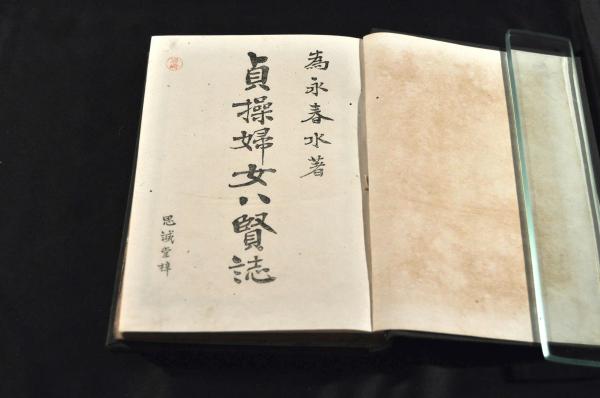 為永春水著
貞操婦女八賢誌
思誠堂梓